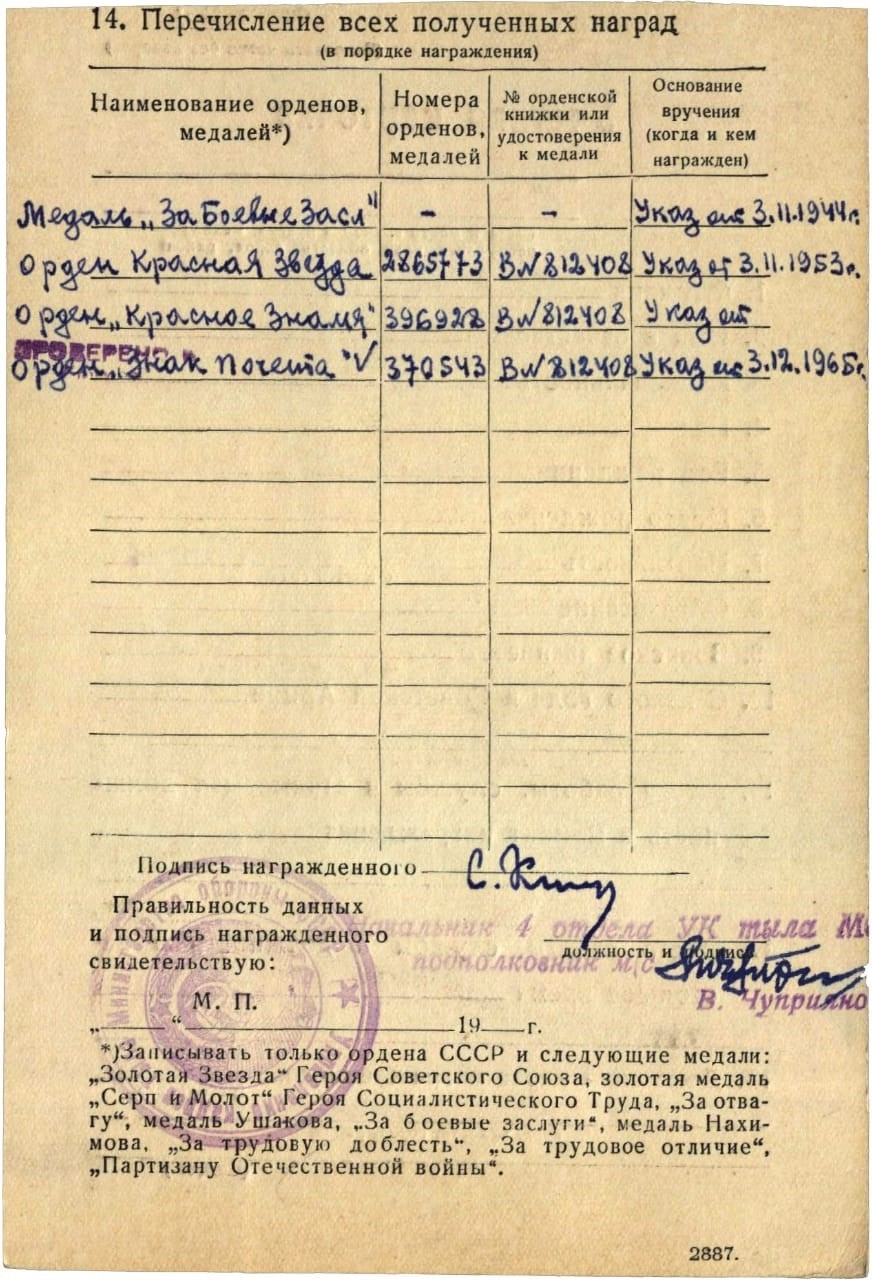 14. Перечисление всех полученных наград
(в порядке награждения)
Наименование орденов, медалей*)
Номера орденов, медалей
№ орденской книжки или удостоверения к медали
Основание вручения (когда и кем награжден)
Медаль „За Боевые Засл" - - Указ от 3.11.1944г.
Орден Красная Звезда 2865773 В№812408 Указ от 3.11.1953г.
Орден „Красное Знамя" 396928 В№812408 Указ от
ПРОВЕРЕНО
Орден „Знак Почета" V 370543 В№812408 Указ от 3.12.1965г.
Подпись награжденного С.
Правильность данных
и подпись награжденного
свидетельствую:
Начальник 4 отдела УК тыла
должность и подпись
подполковник м/с
В. Чуприяно
М. П.
„ “ 19 г.
*)Записывать только ордена СССР и следующие медали:
„Золотая Звезда“ Героя Советского Союза, золотая медаль
„Серп и Молот“ Героя Социалистического Труда, „За отва-
гу“, медаль Ушакова, „За боевые заслуги“, медаль Нахи-
мова, „За трудовую доблесть“, „За трудовое отличие“,
„Партизану Отечественной войны“.
2887.